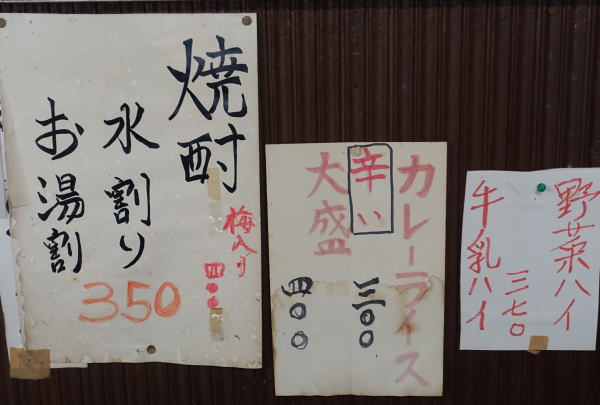 焼酎
梅入り
四〇〇
水割り
お湯割
350
カレーライス
辛い
三〇〇
大盛
四〇〇
野菜ハイ
三七〇
牛乳ハイ